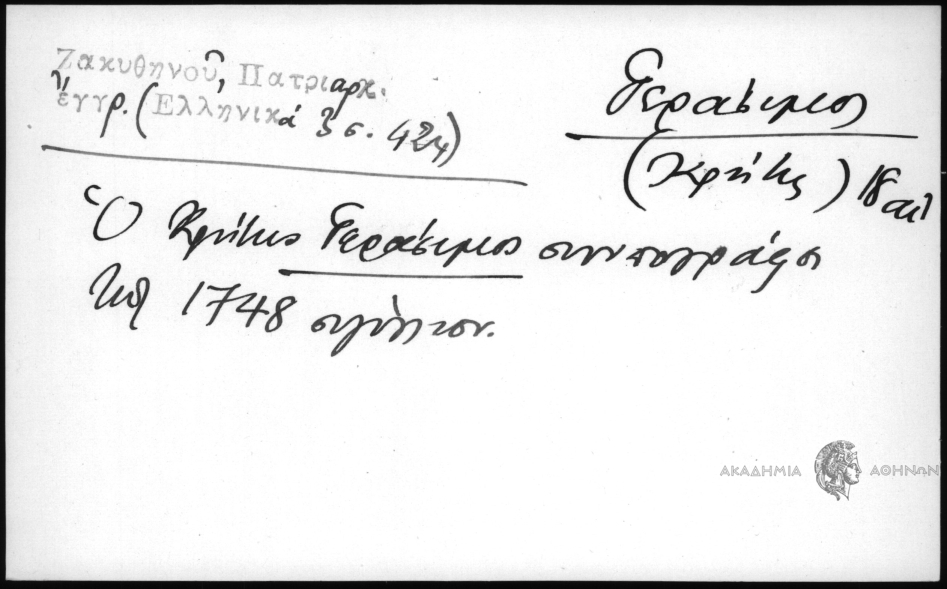 Ζακυθηνοῦ, Πατριαρχ.
ἔγγρ. (Ἑλληνικά 3 σ. 424)
Γεράσιμος
(Κρήτης) 18 αἰ
Ὁ Κρήτης Γεράσιμος συνυπογράφει
τῷ 1748 σιγίλλιον.
ΑΚΑΔΗΜΙΑ ΑΘΗΝΩΝ